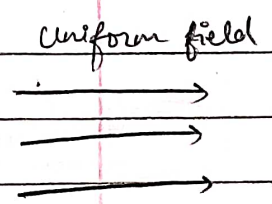 uniform field